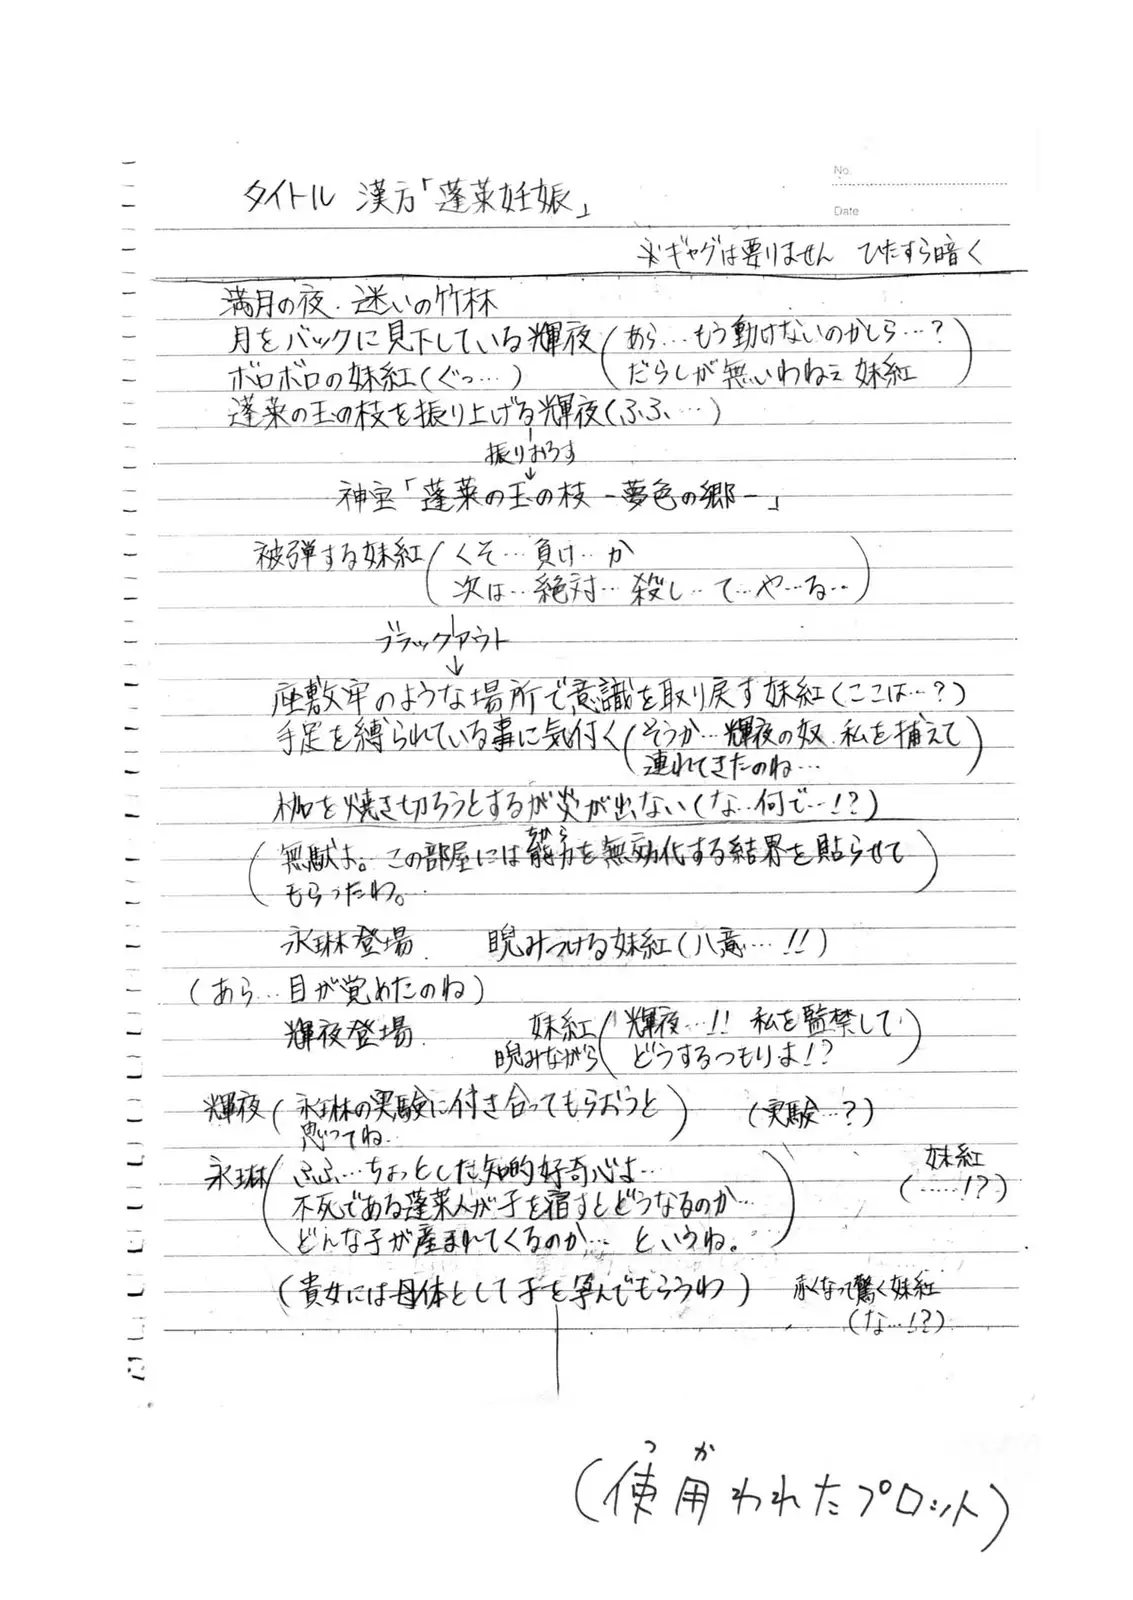 No.
タイトル 漢方「蓬莱妊娠」
Date
※ギャグは要りません ひたすら暗く
満月の夜.迷いの竹林
月をバックに見下している輝夜(あら…もう動けないのかしら…?
だらしが無いわねぇ 妹紅)
ボロボロの妹紅(ぐっ…)
蓬莱の玉の枝を振り上げる輝夜(ふふ…)
振りおろす
↓
神宝「蓬莱の玉の枝 -夢色の郷-」
被弾する妹紅(くそ…負け‥か
次は…絶対…殺し‥て…や…る‥)
ブラックアウト
↓
座敷牢のような場所で意識を取り戻す妹紅(ここは…?)
手足を縛られている事に気付く(そうか…輝夜の奴.私を捕えて
連れてきたのね…)
枷を焼き切ろうとするが炎が出ない(な‥何で…!?)
ちから
(無駄よ。この部屋には能力を無効化する結界を貼らせて
もらったわ。…)
永琳登場. 睨みつける妹紅(八意…!!)
(あら…目が覚めたのね)
輝夜登場. 妹紅睨みながら(輝夜…!! 私を監禁して
どうするつもりよ!?)
輝夜(永琳の実験に付き合ってもらおうと
思ってね…) (実験…?)
永琳(ふふ…ちょっとした知的好奇心よ…
不死である蓬莱人が子を宿すとどうなるのか…
どんな子が産まれてくるのか… というね。)
妹紅
(……!?)
(貴女には母体として子を孕んでもらうわ) 赤くなって驚く妹紅
(な…!?)
つか
(使用われたプロット)